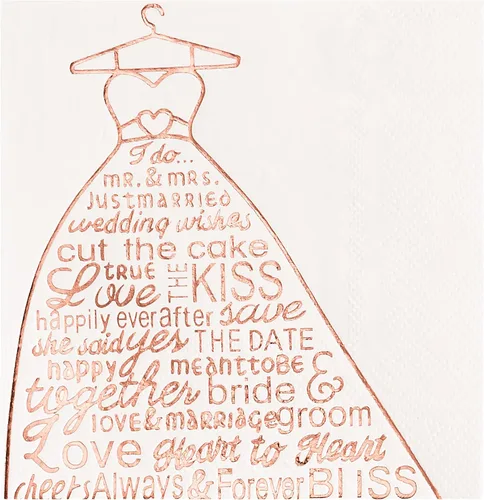 I do...
MR. & MRS.
JUST MARRIED
wedding wishes
cut the cake
TRUE Love THE KISS
happily ever after save
she said yes THE DATE
happy meant to BE &
together bride
LOVE & MARRIAGE groom
Love Heart to Heart
cheers Always & Forever BLISS